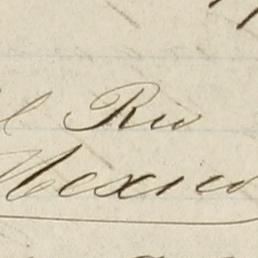 l Rio
Mexico